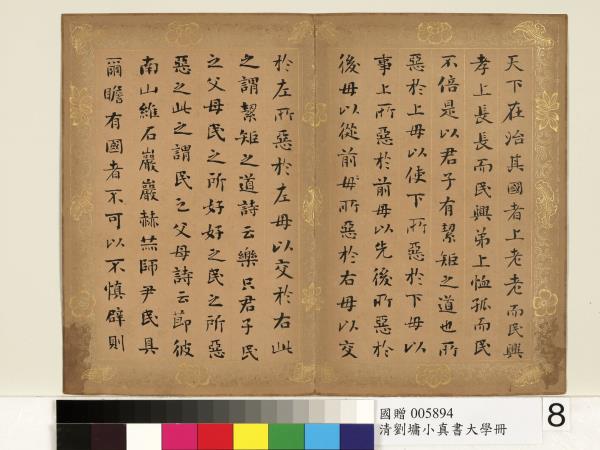 天下在治其國者上老老而民興
孝上長長而民興弟上恤孤而民
不倍是以君子有絜矩之道也所
惡於上毋以使下所惡於下毋以
事上所惡於前毋以先後所惡於
後毋以從前毋所惡於右毋以交
於左所惡於左毋以交於右此
之謂絜矩之道詩云樂只君子民
之父母民之所好好之民之所惡
惡之此之謂民之父母詩云節彼
南山維石巖巖赫赫師尹民具
爾瞻有國者不可以不慎辟則
國贈 005894
清劉墉小真書大學冊
8